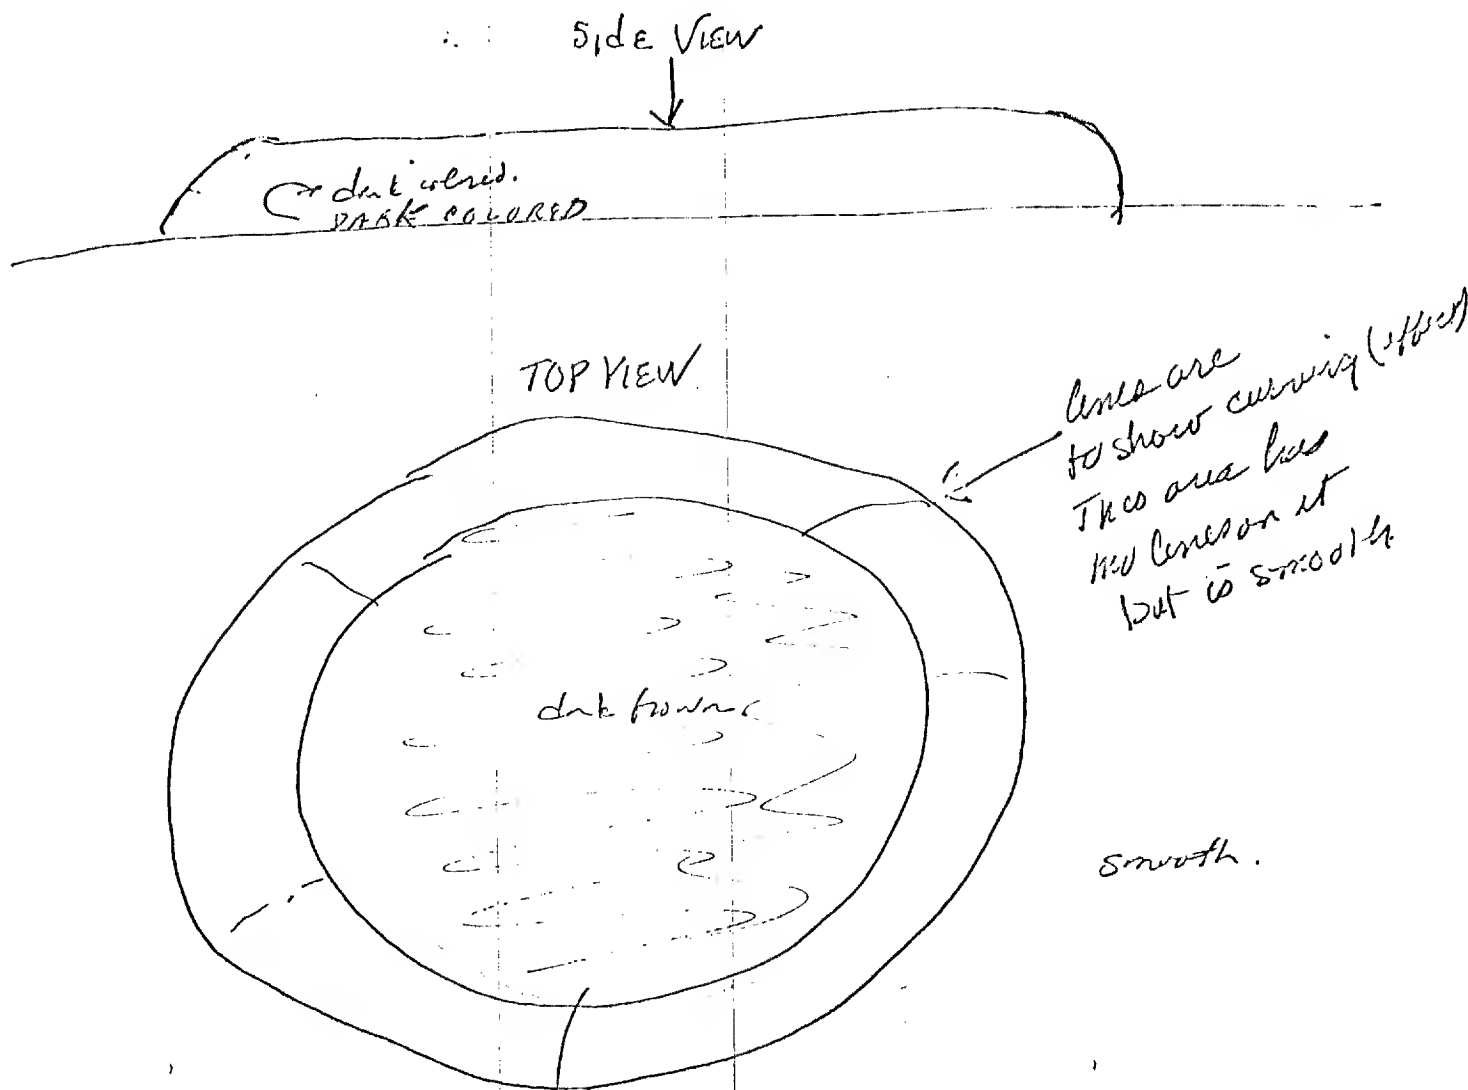 SIDE VIEW
dark colored.
DARK COLORED
TOP VIEW
lines are
to show curving (effect)
This area has
no lines on it
but is smooth
dark
smooth.